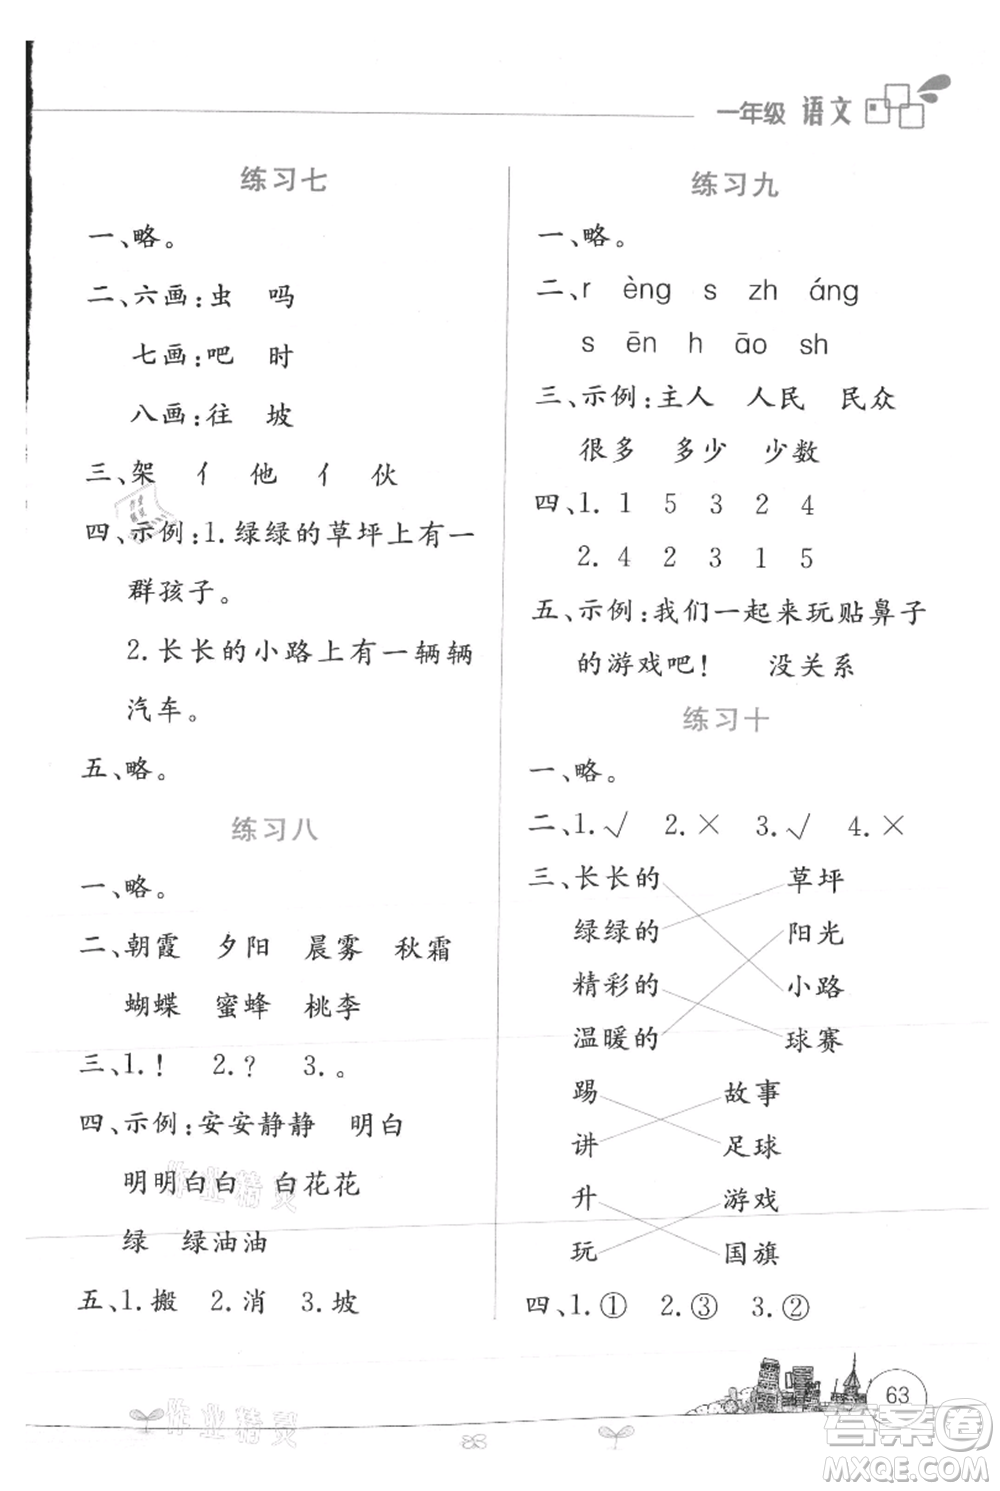 一年级 语文
练习七
一、略。
二、六画:虫 吗
七画:吧 时
八画:往 坡
三、架 亻 他 亻 伙
四、示例:1.绿绿的草坪上有一
群孩子。
2.长长的小路上有一辆辆
汽车。
五、略。
练习八
一、略。
二、朝霞 夕阳 晨雾 秋霜
蝴蝶 蜜蜂 桃李
三、1.! 2.? 3.。
四、示例:安安静静 明白
明明白白 白花花
绿 绿油油
五、1.搬 2.消 3.坡
练习九
一、略。
二、r èng s zh áng
s ēn h āo sh
三、示例:主人 人民 民众
很多 多少 少数
四、1. 1 5 3 2 4
2. 4 2 3 1 5
五、示例:我们一起来玩贴鼻子
的游戏吧! 没关系
练习十
一、略。
二、1.√ 2.× 3.√ 4.×
三、长长的 草坪
绿绿的 阳光
精彩的 小路
温暖的 球赛
踢 故事
讲 足球
升 游戏
玩 国旗
四、1.① 2.③ 3.②
63
作业精灵
作业精灵
作业精灵
答案圈
MXQE.COM